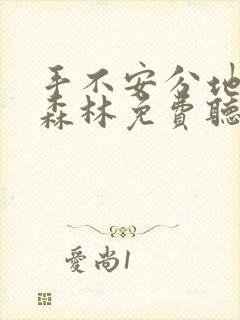 手不安分地
森林免费聽
愛尚1